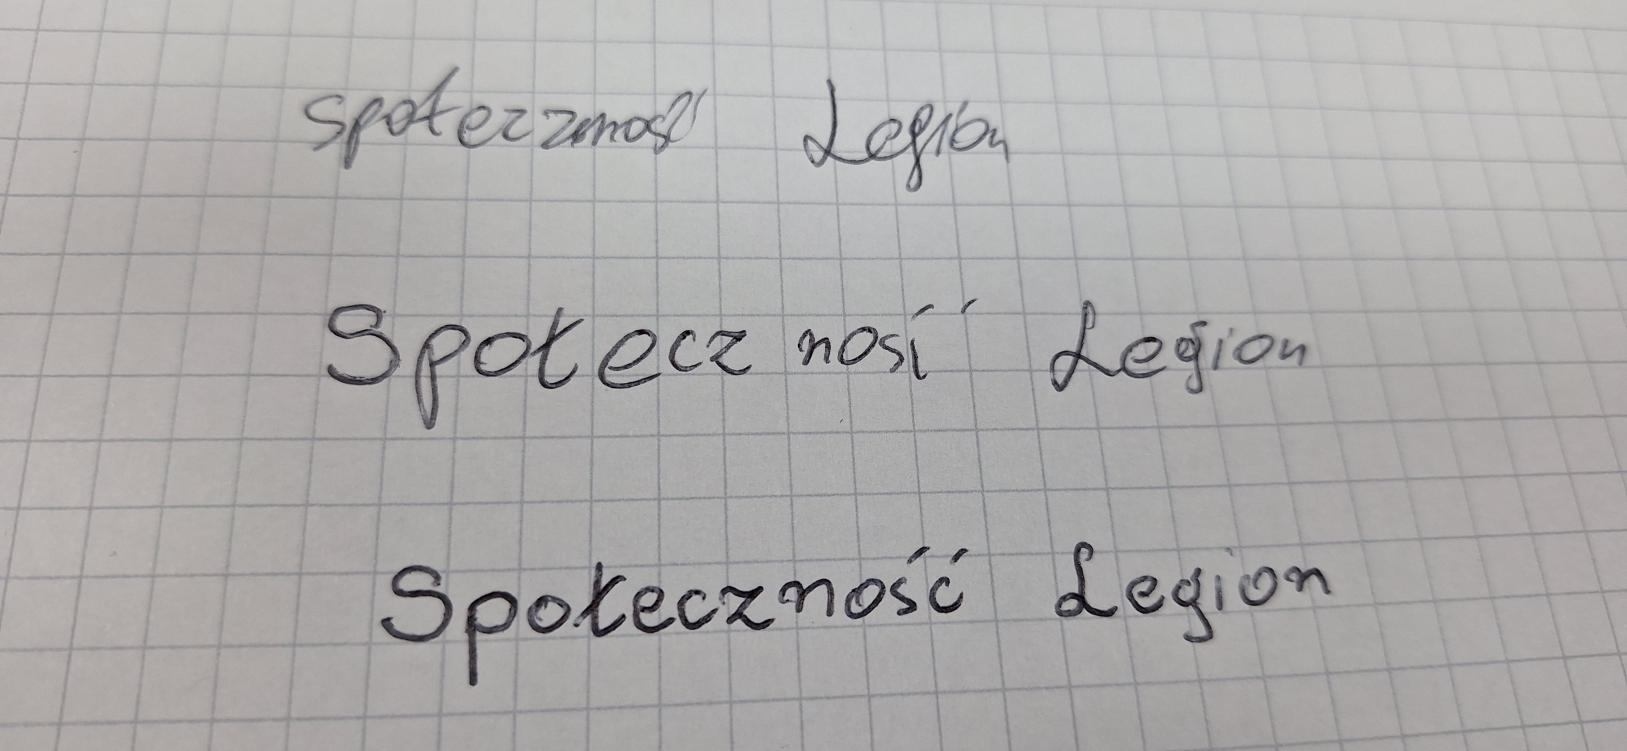 Społeczność Legion
Społeczność Legion
Społeczność Legion